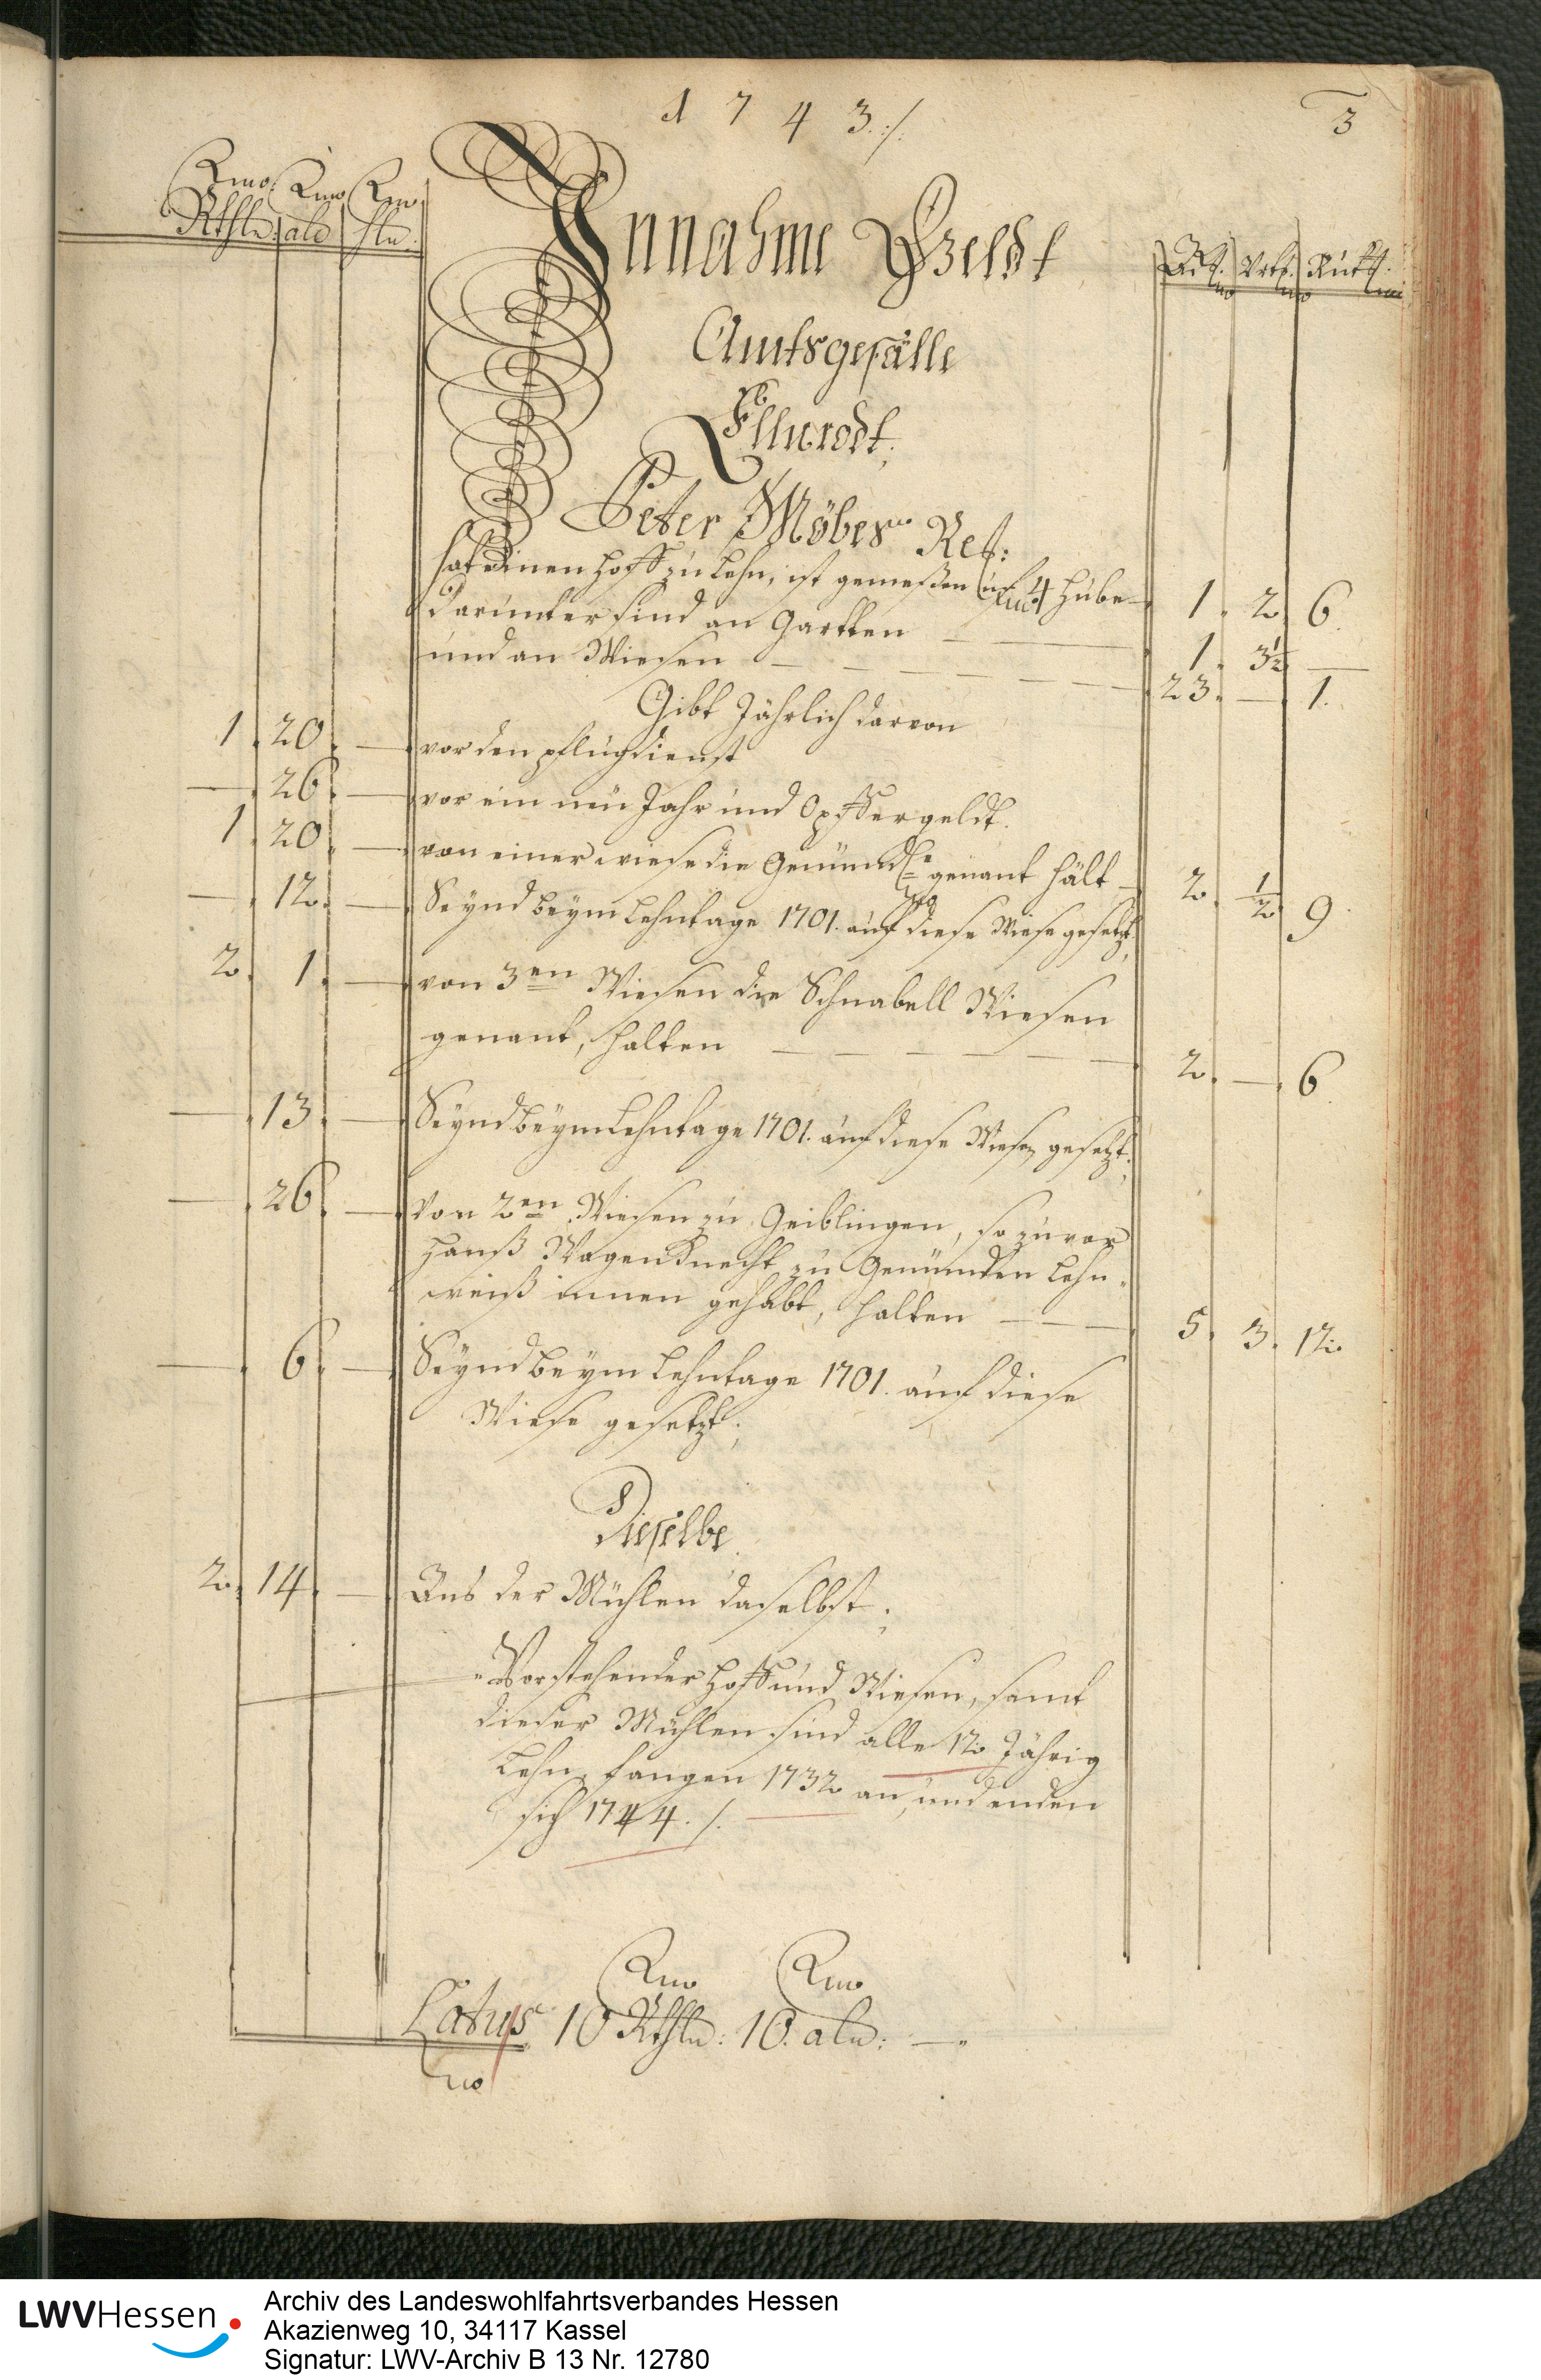 1 7 4 3 ./.
3
Rthlr: alb hlr:
Innahme Geldt
Ack. Vrt. Ruht.
Amtsgefälle
Ellnrodt,
Peter Möbes Rel:
hat einen Hoff zu Lehn, ist gemeßen uf 4 Hube — 1. 2. 6.
darunter sind an Gartten — 1. 3½ —
und an Wiesen — 23. — 1.
Gibt Jährlich darvon
1. 20. — vor den pflugdienst
— 26. — vor ein neu Jahr und Opffergeldt.
1. 20. — von einer wiese die Gemünd genant hält — 2. ½ 9.
— 12. — Seynd beym Lehntage 1701. auf diese Wiese gesetzt,
2. 1. — von 3en Wiesen die Schnabell Wiesen
genant, halten — 2. — 6.
— 13. — Seynd beym Lehntage 1701. auf diese Wiesen gesetzt,
— 26. — Von 2en Wiesen zu Geiblingen, so zuvor
Hanß Wagenknecht zu Gemünden Lehn-
weiß innen gehabt, halten — 5. 3. 12.
— 6. — Seynd beym Lehntage 1701. auf diese
Wiese gesetzt,
Dieselbe
2. 14. — Aus der Mühlen daselbst,
Vorstehender Hoff und Wiesen, samt
dieser Mühlen sind alle 12 Jährig
Lehn, fangen 1732 an, und enden
sich 1744. /.
Latus 10 Rthlr: 10. alb: —
LWVHessen
Archiv des Landeswohlfahrtsverbandes Hessen
Akazienweg 10, 34117 Kassel
Signatur: LWV-Archiv B 13 Nr. 12780